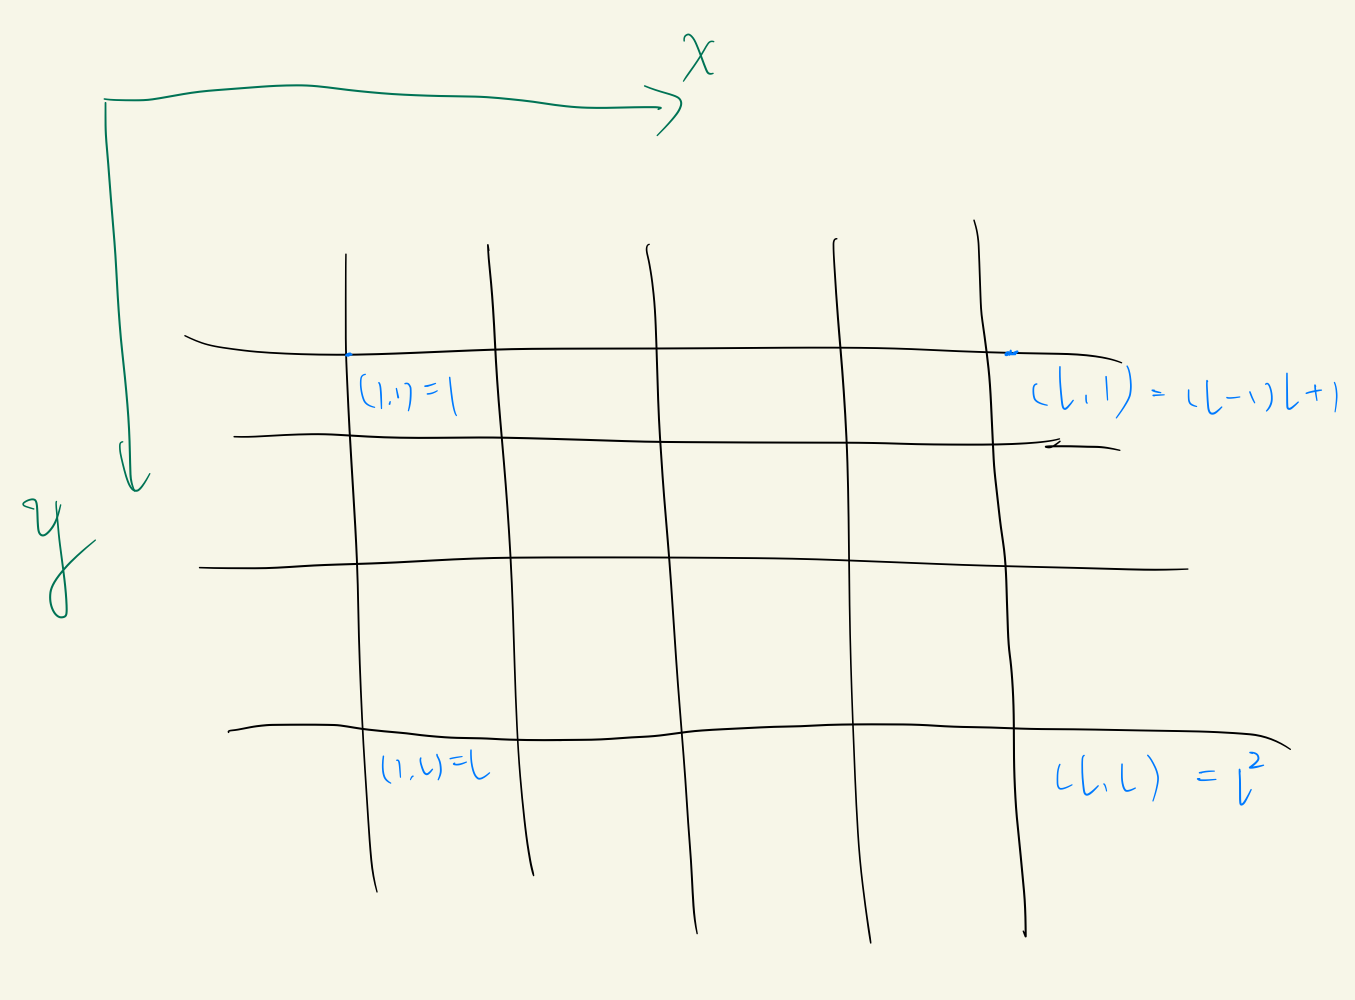 x
(1,1) = 1
(L,1) = (L-1)L+1
y
(1,L)=L
(L,L) = L²